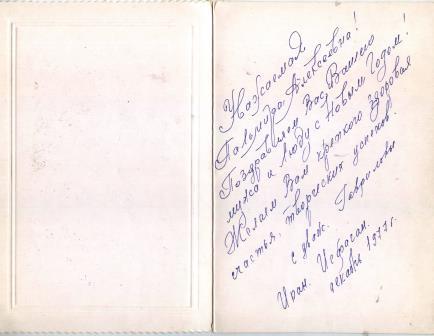 Уважаемая
Пальмира Алексеевна!
Поздравляем Вас, Вашего
мужа и Люду с Новым Годом!
Желаем Вам крепкого здоровья
счастья, творческих успехов.
с уваж. Гавриловы
Иран. Исфаган.
декабрь 1977г.